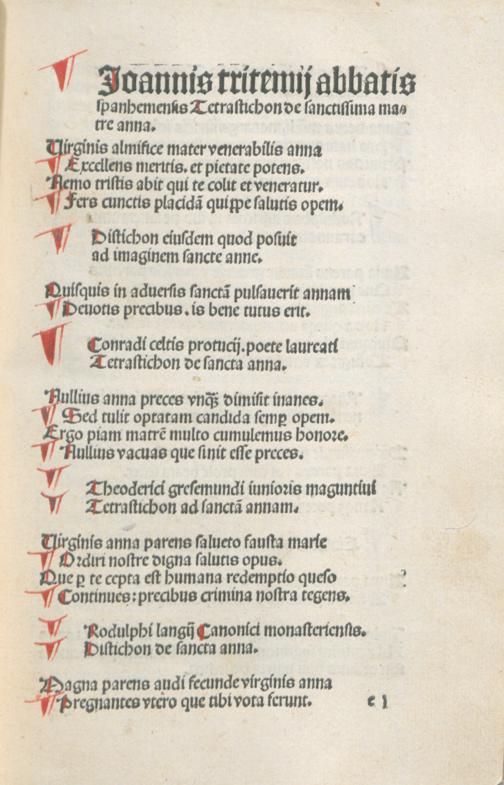 Joannis tritemij abbatis
spanhemensis Tetrastichon de sanctissima ma-
tre anna.
Virginis almifice mater venerabilis anna
Excellens meritis. et pietate potens.
Nemo tristis abit qui te colit et veneratur.
Fers cunctis placidā quippe salutis opem.
Distichon eiusdem quod posuit
ad imaginem sancte anne.
Quisquis in adversis sanctā pulsaverit annam
Devotis precibus. is bene tutus erit.
Conradi celtis protucij. poete laureati
Tetrastichon de sancta anna.
Nullius anna preces vnqȝ dimisit inanes.
Sed tulit optatam candida semꝑ opem.
Ergo piam matrē multo cumulemus honore.
Nullius vacuas que sinit esse preces.
Theoderici gresemundi iunioris maguntiui
Tetrastichon ad sanctā annam.
Virginis anna parens salueto fausta marie
Ordiri nostre digna salutis opus.
Que ꝑ te cepta est humana redemptio queso
Continues: precibus crimina nostra tegens.
Rodulphi langij Canonici monasteriensis.
Distichon de sancta anna.
Magna parens audi fecunde virginis anna
Pregnantes vtero que tibi vota ferunt.
e j